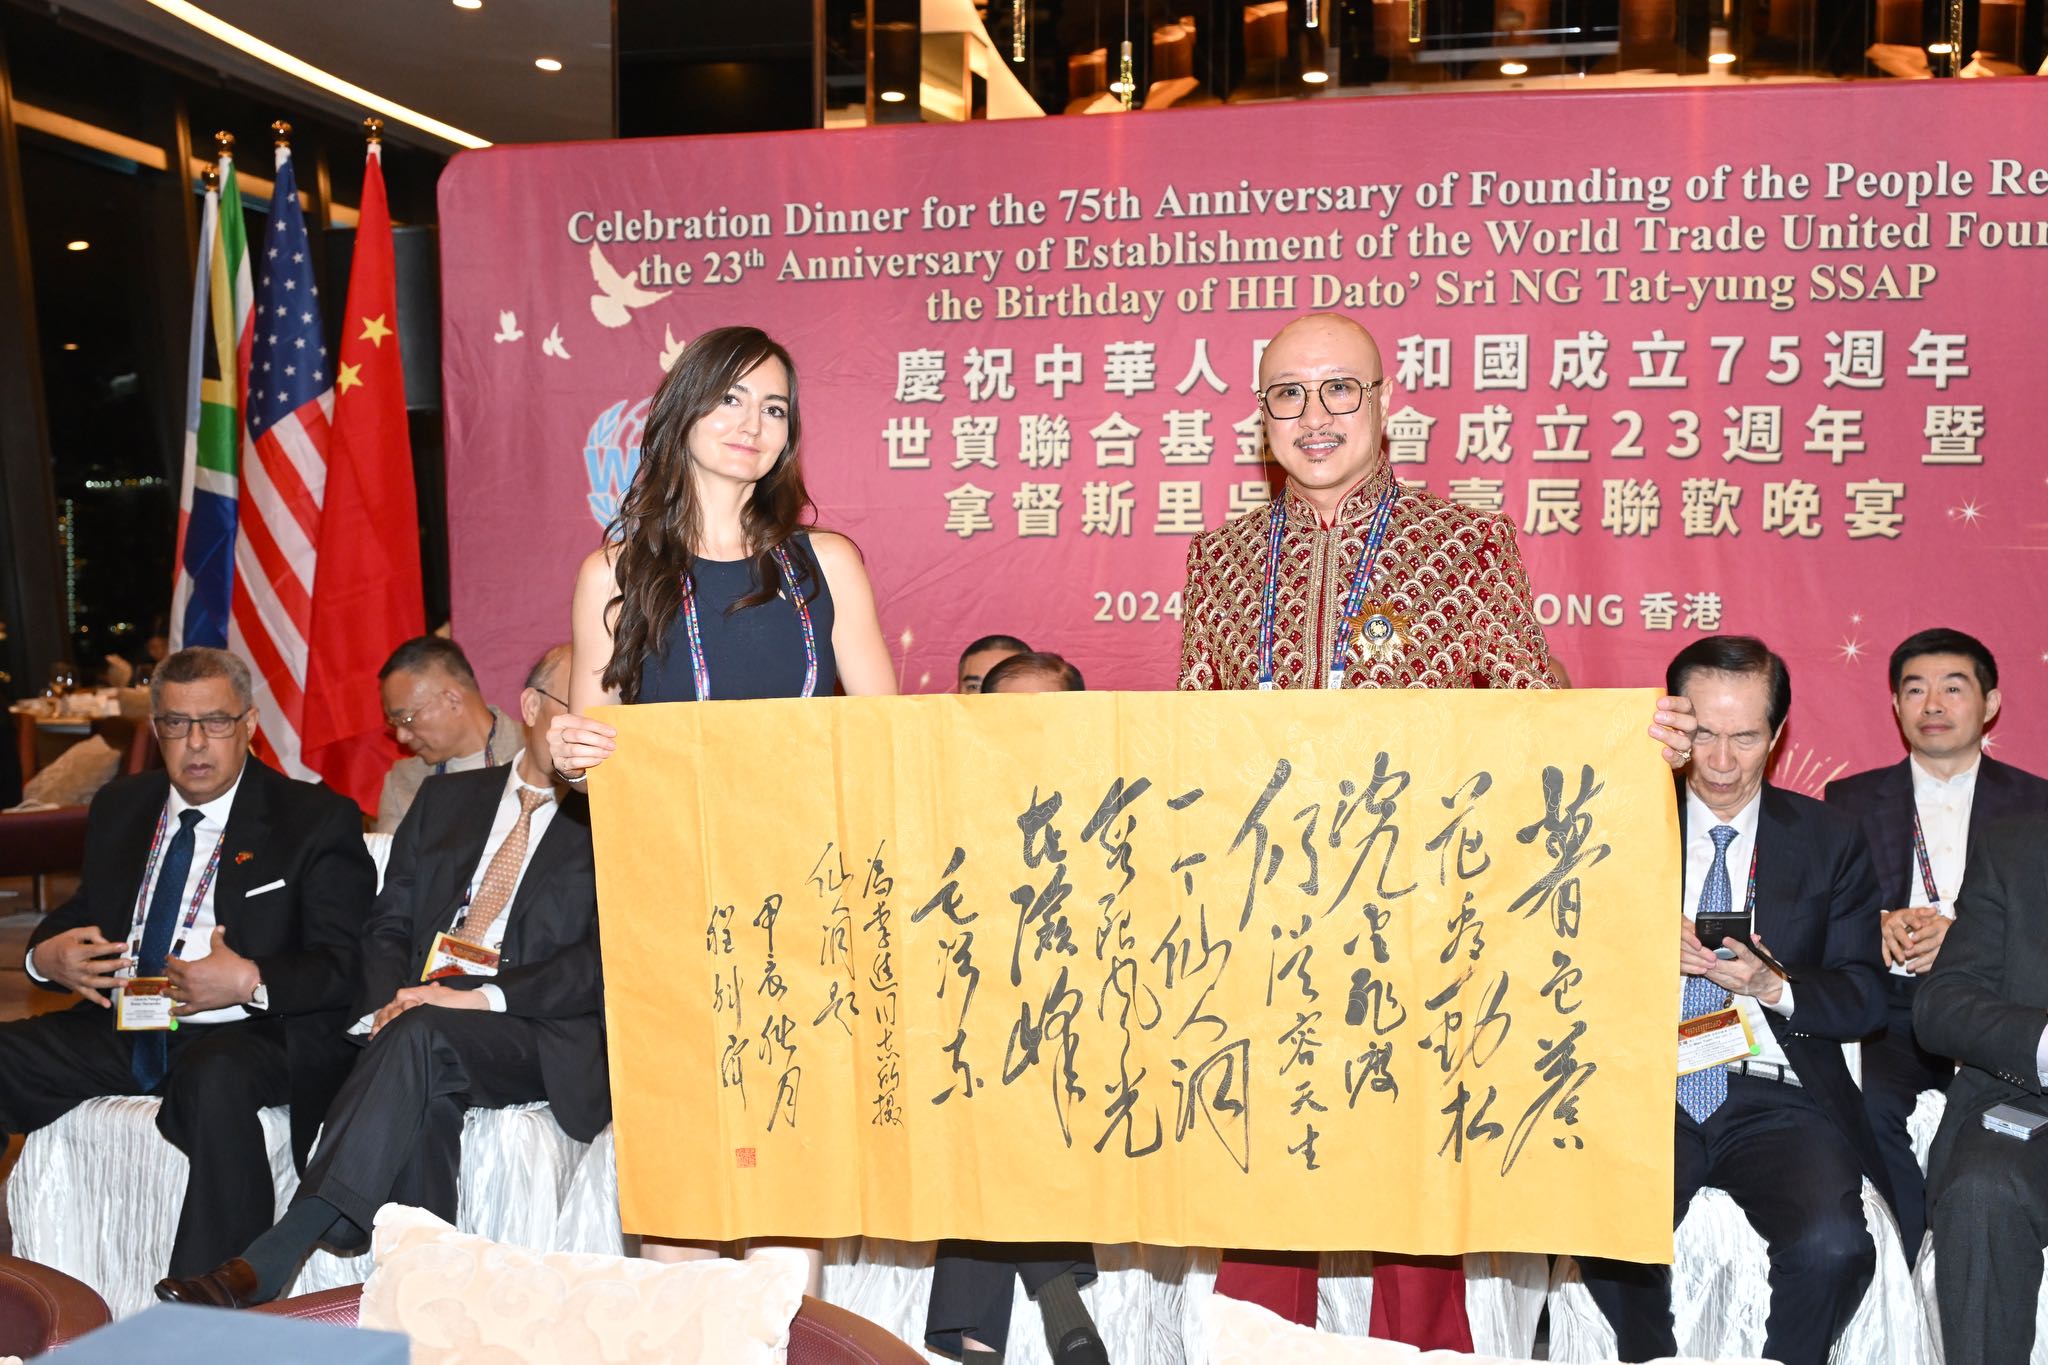 Celebration Dinner for the 75th Anniversary of Founding of the People Re
the 23th Anniversary of Establishment of the World Trade United Foun
the Birthday of HH Dato’ Sri NG Tat-yung SSAP
慶祝中華人 和國成立75週年
世貿聯合基金 會成立23週年 暨
拿督斯里吳 壽辰聯歡晚宴
2024 ONG 香港
W
暮色蒼
茫看勁松
亂雲飛渡
仍從容天生
一个仙人洞
無限風光
在險峰
毛澤東
為李進同志所攝
仙人洞題
甲辰秋月